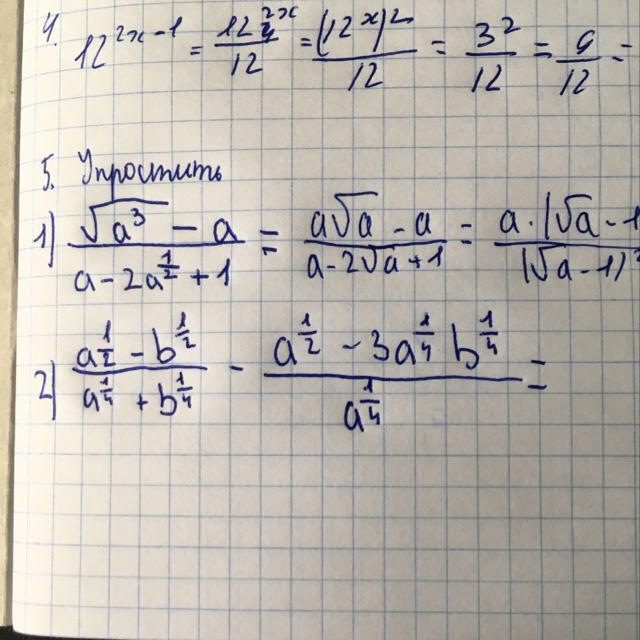 4. 12^{2x-1} = \frac{12^{2x}}{12} = \frac{(12^x)^2}{12} = \frac{3^2}{12} = \frac{9}{12} =
5. Упростить
1) \frac{\sqrt{a^3} - a}{a - 2a^{\frac{1}{2}} + 1} = \frac{a\sqrt{a} - a}{a - 2\sqrt{a} + 1} = \frac{a \cdot (\sqrt{a} - 1}{(\sqrt{a} - 1)^2}
2) \frac{a^{\frac{1}{2}} - b^{\frac{1}{2}}}{a^{\frac{1}{4}} + b^{\frac{1}{4}}} - \frac{a^{\frac{1}{2}} - 3a^{\frac{1}{4}} b^{\frac{1}{4}}}{a^{\frac{1}{4}}} =